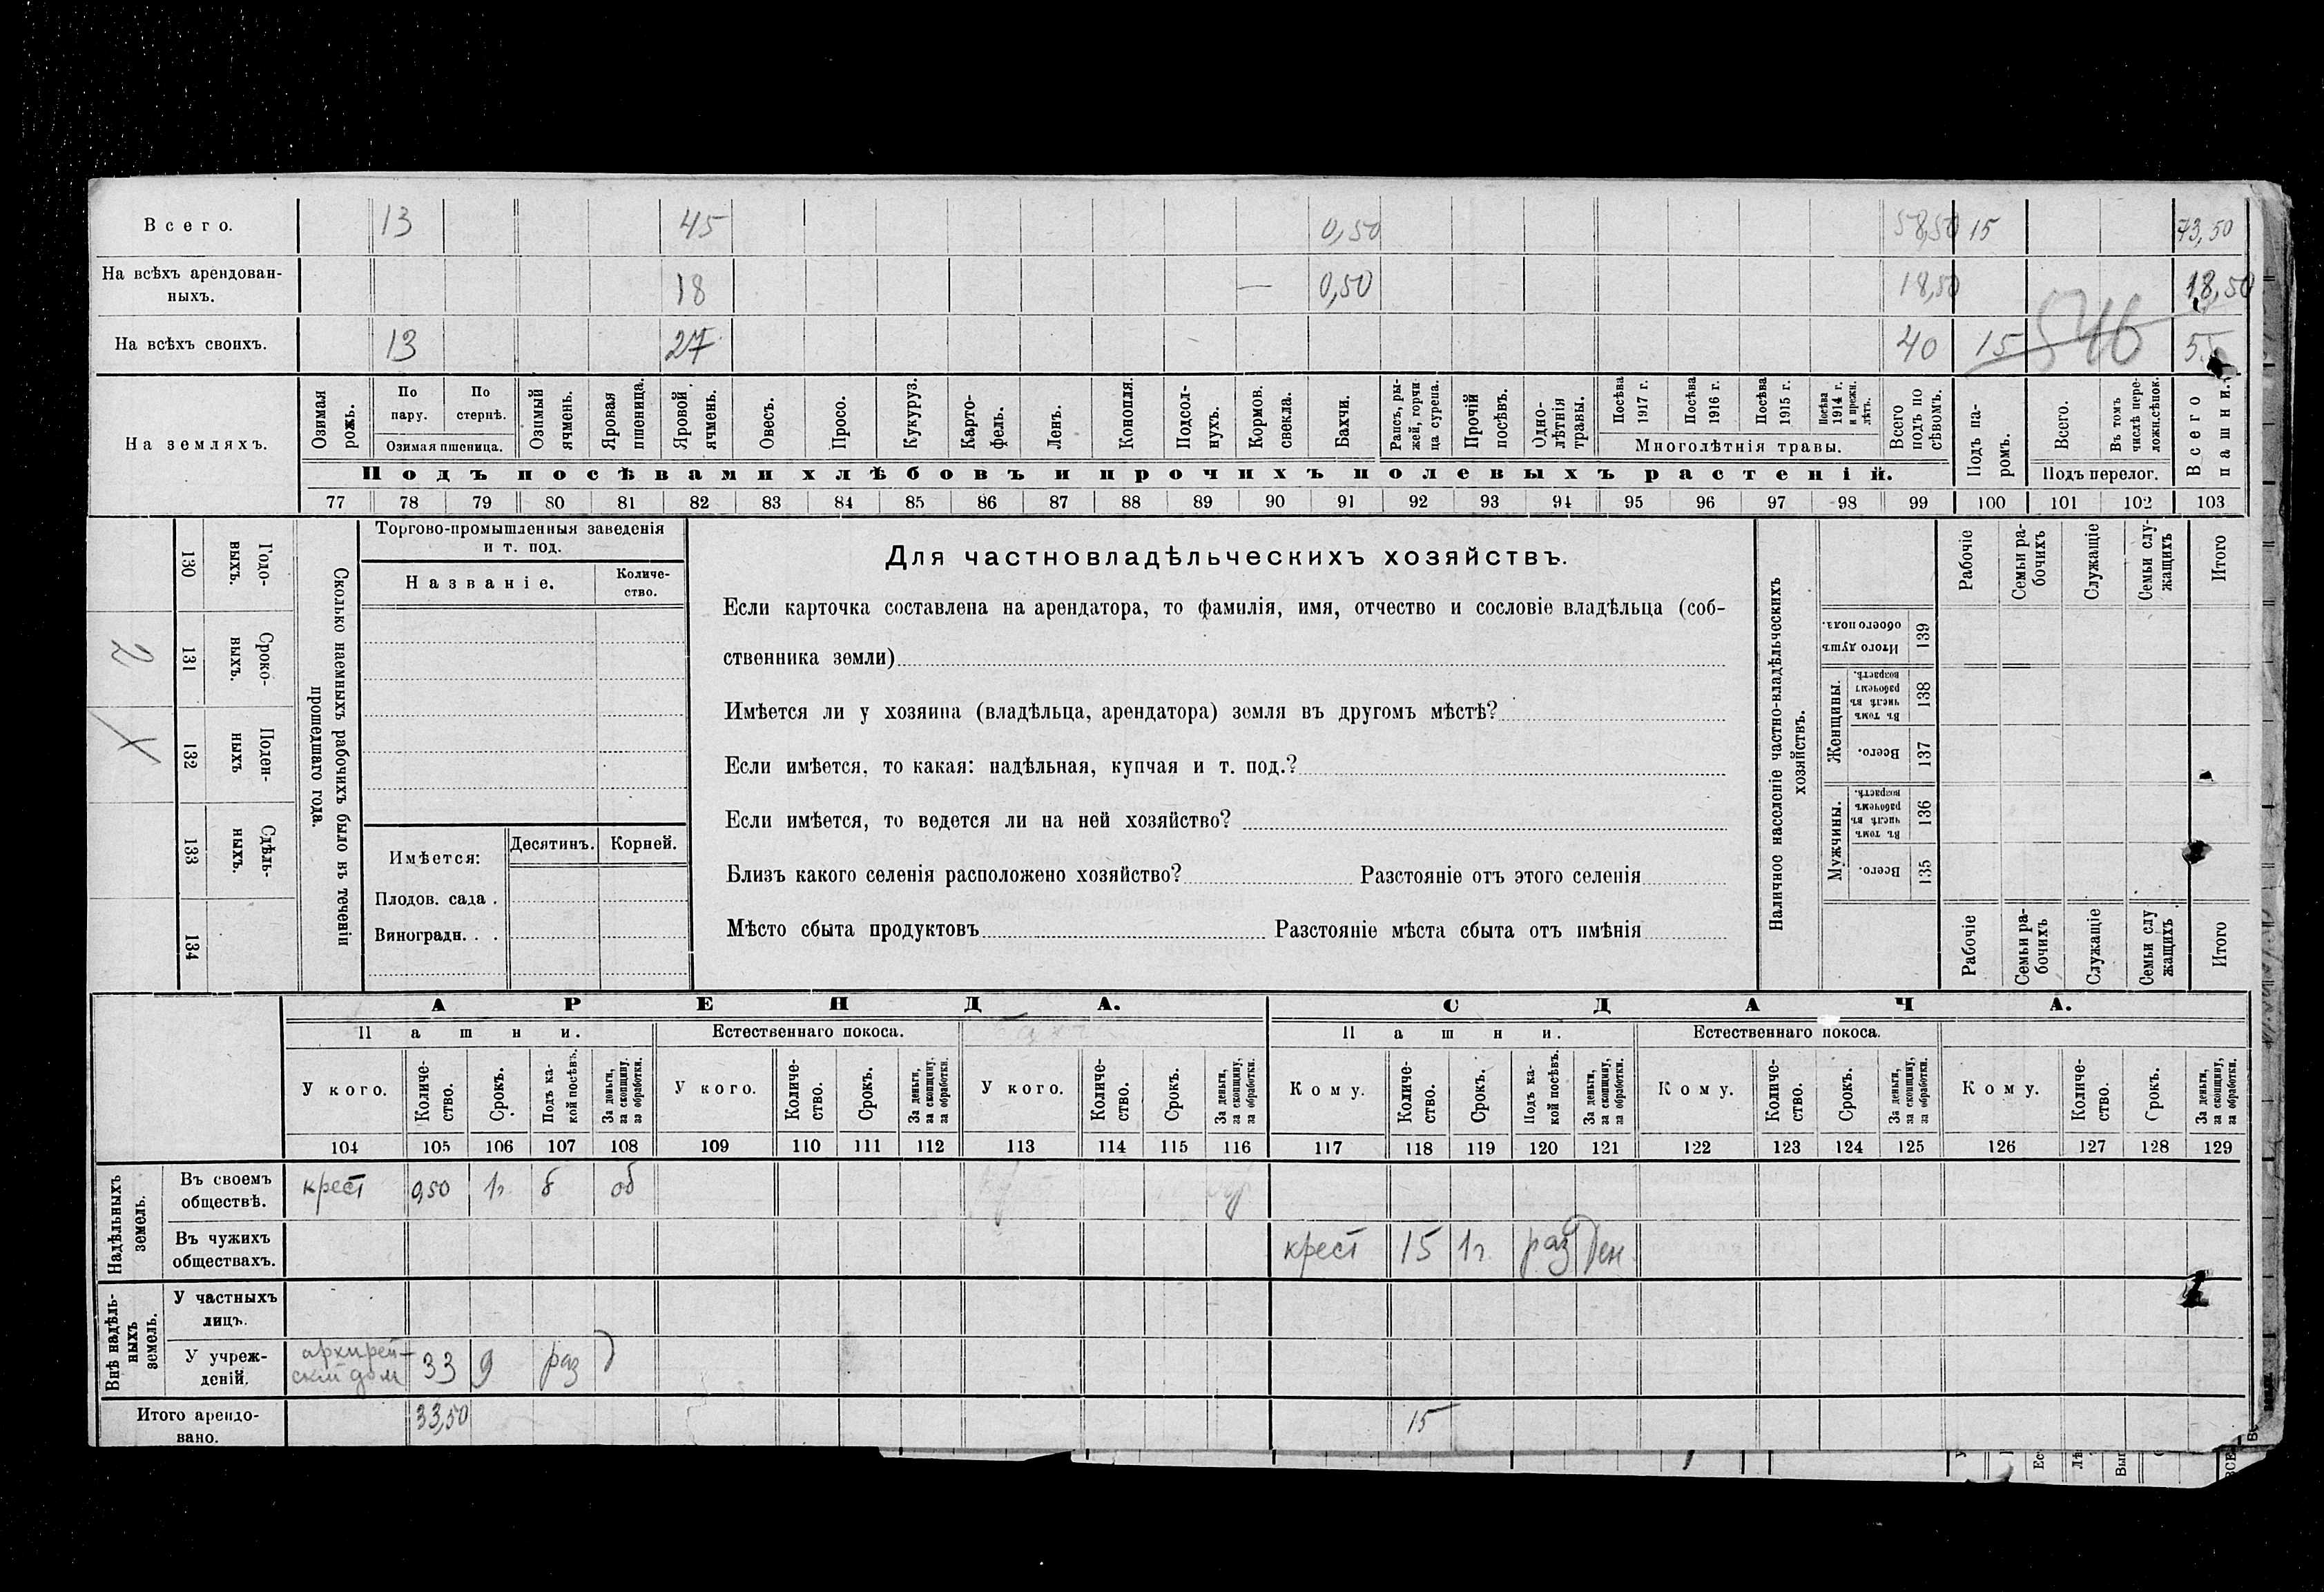 Всего. 13 45 0,50 58,50 15 73,50
На всѣхъ арендован-
ныхъ. 18 — 0,50 18,50 18,50
На всѣхъ своихъ. 13 27 40 15 546
На земляхъ.
Озимая рожь.
По пару.
По стернѣ.
Озимая пшеница.
Озимый ячмень.
Яровая пшеница.
Яровой ячмень.
Овесъ.
Просо.
Кукуруз.
Карто-
фель.
Ленъ.
Конопля.
Подсол-
нухъ.
Кормов.
свекла.
Бахчи.
Рапсъ, ры-
жей, горчи-
ца сурепа.
Прочій
посѣвъ.
Одно-
лѣтнія
травы.
Посѣва
1917 г.
Посѣва
1916 г.
Посѣва
1915 г.
Посѣва
1914 г.
и прежн.
лѣтъ.
Многолѣтнія травы.
Всего
подъ по
сѣвомъ.
Подъ па-
ромъ.
Всего.
Въ томъ
числѣ пере-
ложн.сѣнок.
Подъ перелог.
Всего
пашни.
Подъ посѣвами хлѣбовъ и прочихъ полевыхъ растеній.
77 78 79 80 81 82 83 84 85 86 87 88 89 90 91 92 93 94 95 96 97 98 99 100 101 102 103
Годо-
ныхъ.
130
Сроко-
ныхъ.
131
2
Поден-
ныхъ
132
Сдѣль-
ныхъ.
133
134
Сколько наемныхъ рабочихъ было въ теченіи
прошедшаго года.
Торгово-промышленныя заведенія
и т. под.
Названіе.
Количе-
ство.
Имѣется:
Десятинъ. Корней.
Плодов. сада .
Виноградн. . .
Для частновладѣльческихъ хозяйствъ.
Если карточка составлена на арендатора, то фамилія, имя, отчество и сословіе владѣльца (соб-
ственника земли)
Имѣется ли у хозяина (владѣльца, арендатора) земля въ другомъ мѣстѣ?
Если имѣется, то какая: надѣльная, купчая и т. под.?
Если имѣется, то ведется ли на ней хозяйство?
Близъ какого селенія расположено хозяйство? Разстояніе отъ этого селенія
Мѣсто сбыта продуктовъ Разстояніе мѣста сбыта отъ имѣнія
Наличное населеніе частно-владѣльческихъ
хозяйствъ.
Рабочіе
Семьи ра-
бочихъ
Служащіе
Семьи слу-
жащихъ
Итого
Итого душъ
обоего пола.
139
Женщины.
Въ томъ
числѣ въ
рабочемъ
возрастѣ.
138
Всего.
137
Мужчины.
Въ томъ
числѣ въ
рабочемъ
возрастѣ.
136
Всего.
135
Рабочіе
Семьи ра-
бочихъ
Служащіе
Семьи слу
жащихъ
Итого
АРЕНДА. СДАЧА.
Пашни. Естественнаго покоса. Пашни. Естественнаго покоса.
У кого.
Количе-
ство.
Срокъ.
Подъ ка-
кой посѣвъ.
За деньги,
за скопщину,
за обработки.
У кого.
Количе-
ство.
Срокъ.
За деньги,
за скопщину,
за обработки.
У кого.
Количе-
ство.
Срокъ.
За деньги,
за скопщину,
за обработки.
Кому.
Количе-
ство.
Срокъ.
Подъ ка-
кой посѣвъ.
За деньги,
за скопщину,
за обработки.
Кому.
Количе-
ство.
Срокъ.
За деньги,
за скопщину,
за обработки.
Кому.
Количе-
ство.
Срокъ.
За деньги,
за скопщину,
за обработки.
104 105 106 107 108 109 110 111 112 113 114 115 116 117 118 119 120 121 122 123 124 125 126 127 128 129
Надѣльныхъ
земель.
Въ своемъ
обществѣ. крест 0,50 1г б об
Въ чужихъ
обществахъ. крест 15 1г. раз Ден.
Внѣ надѣль-
ныхъ
земель.
У частныхъ
лицъ.
У учреж-
деній. архирей-
ский дом 33 9 раз д
Итого арендо-
вано. 33,50 15